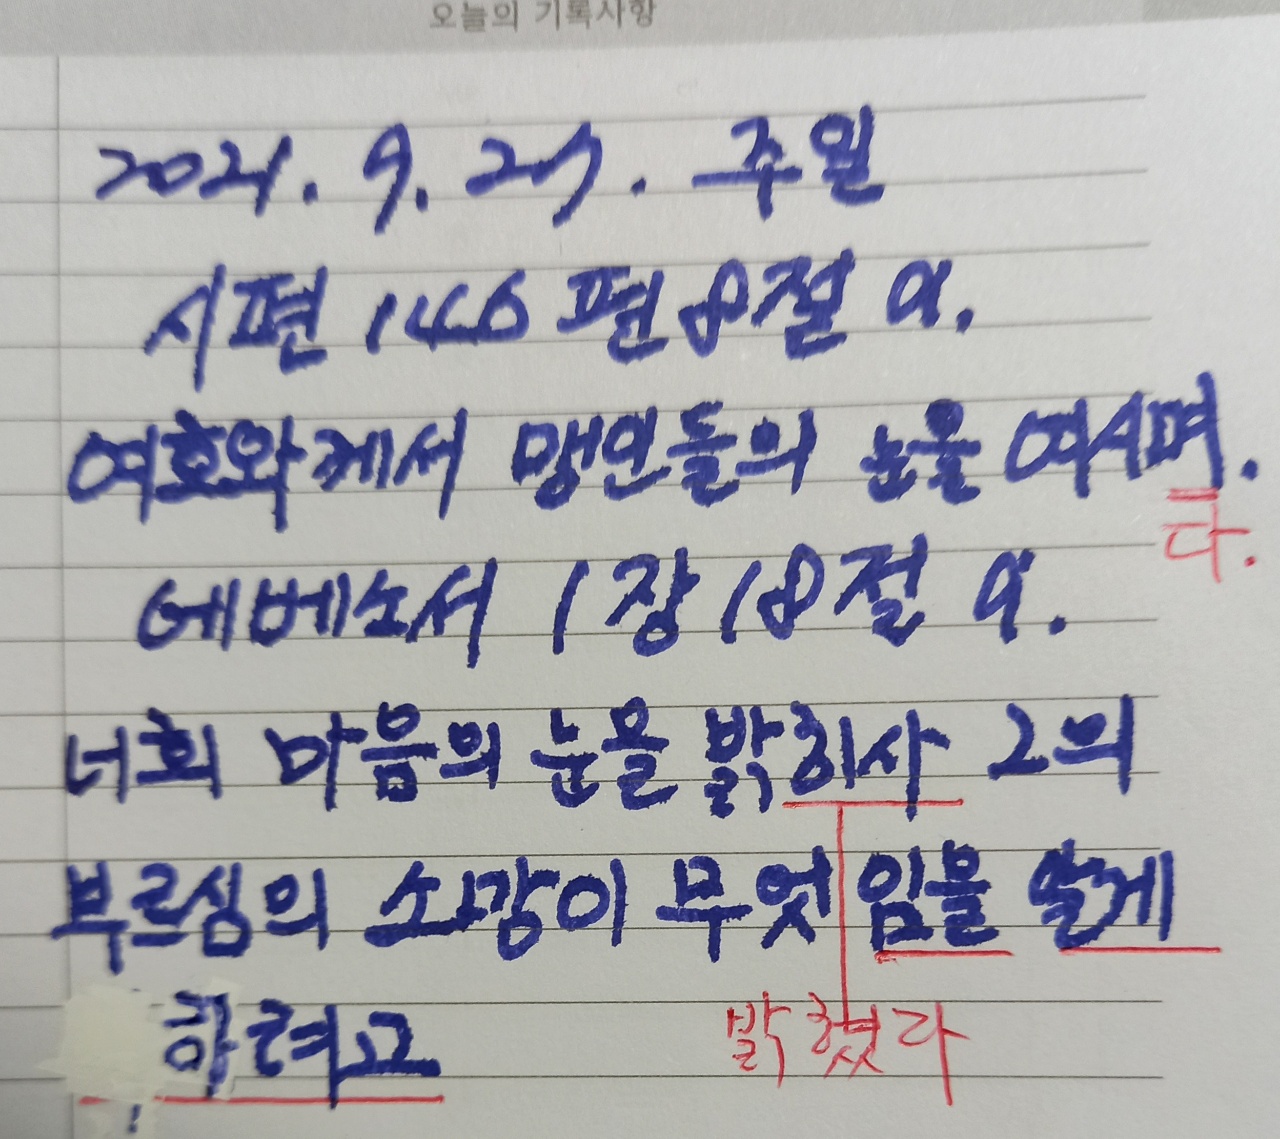 오늘의 기록사항
2021. 9. 27. 주일
시편 146 편 8절 a.
여호와께서 맹인들의 눈을 여시며.
다.
에베소서 1장 18절 a.
너희 마음의 눈을 밝히사 그의
부르심의 소망이 무엇임을 알게
하려고
밝혔다